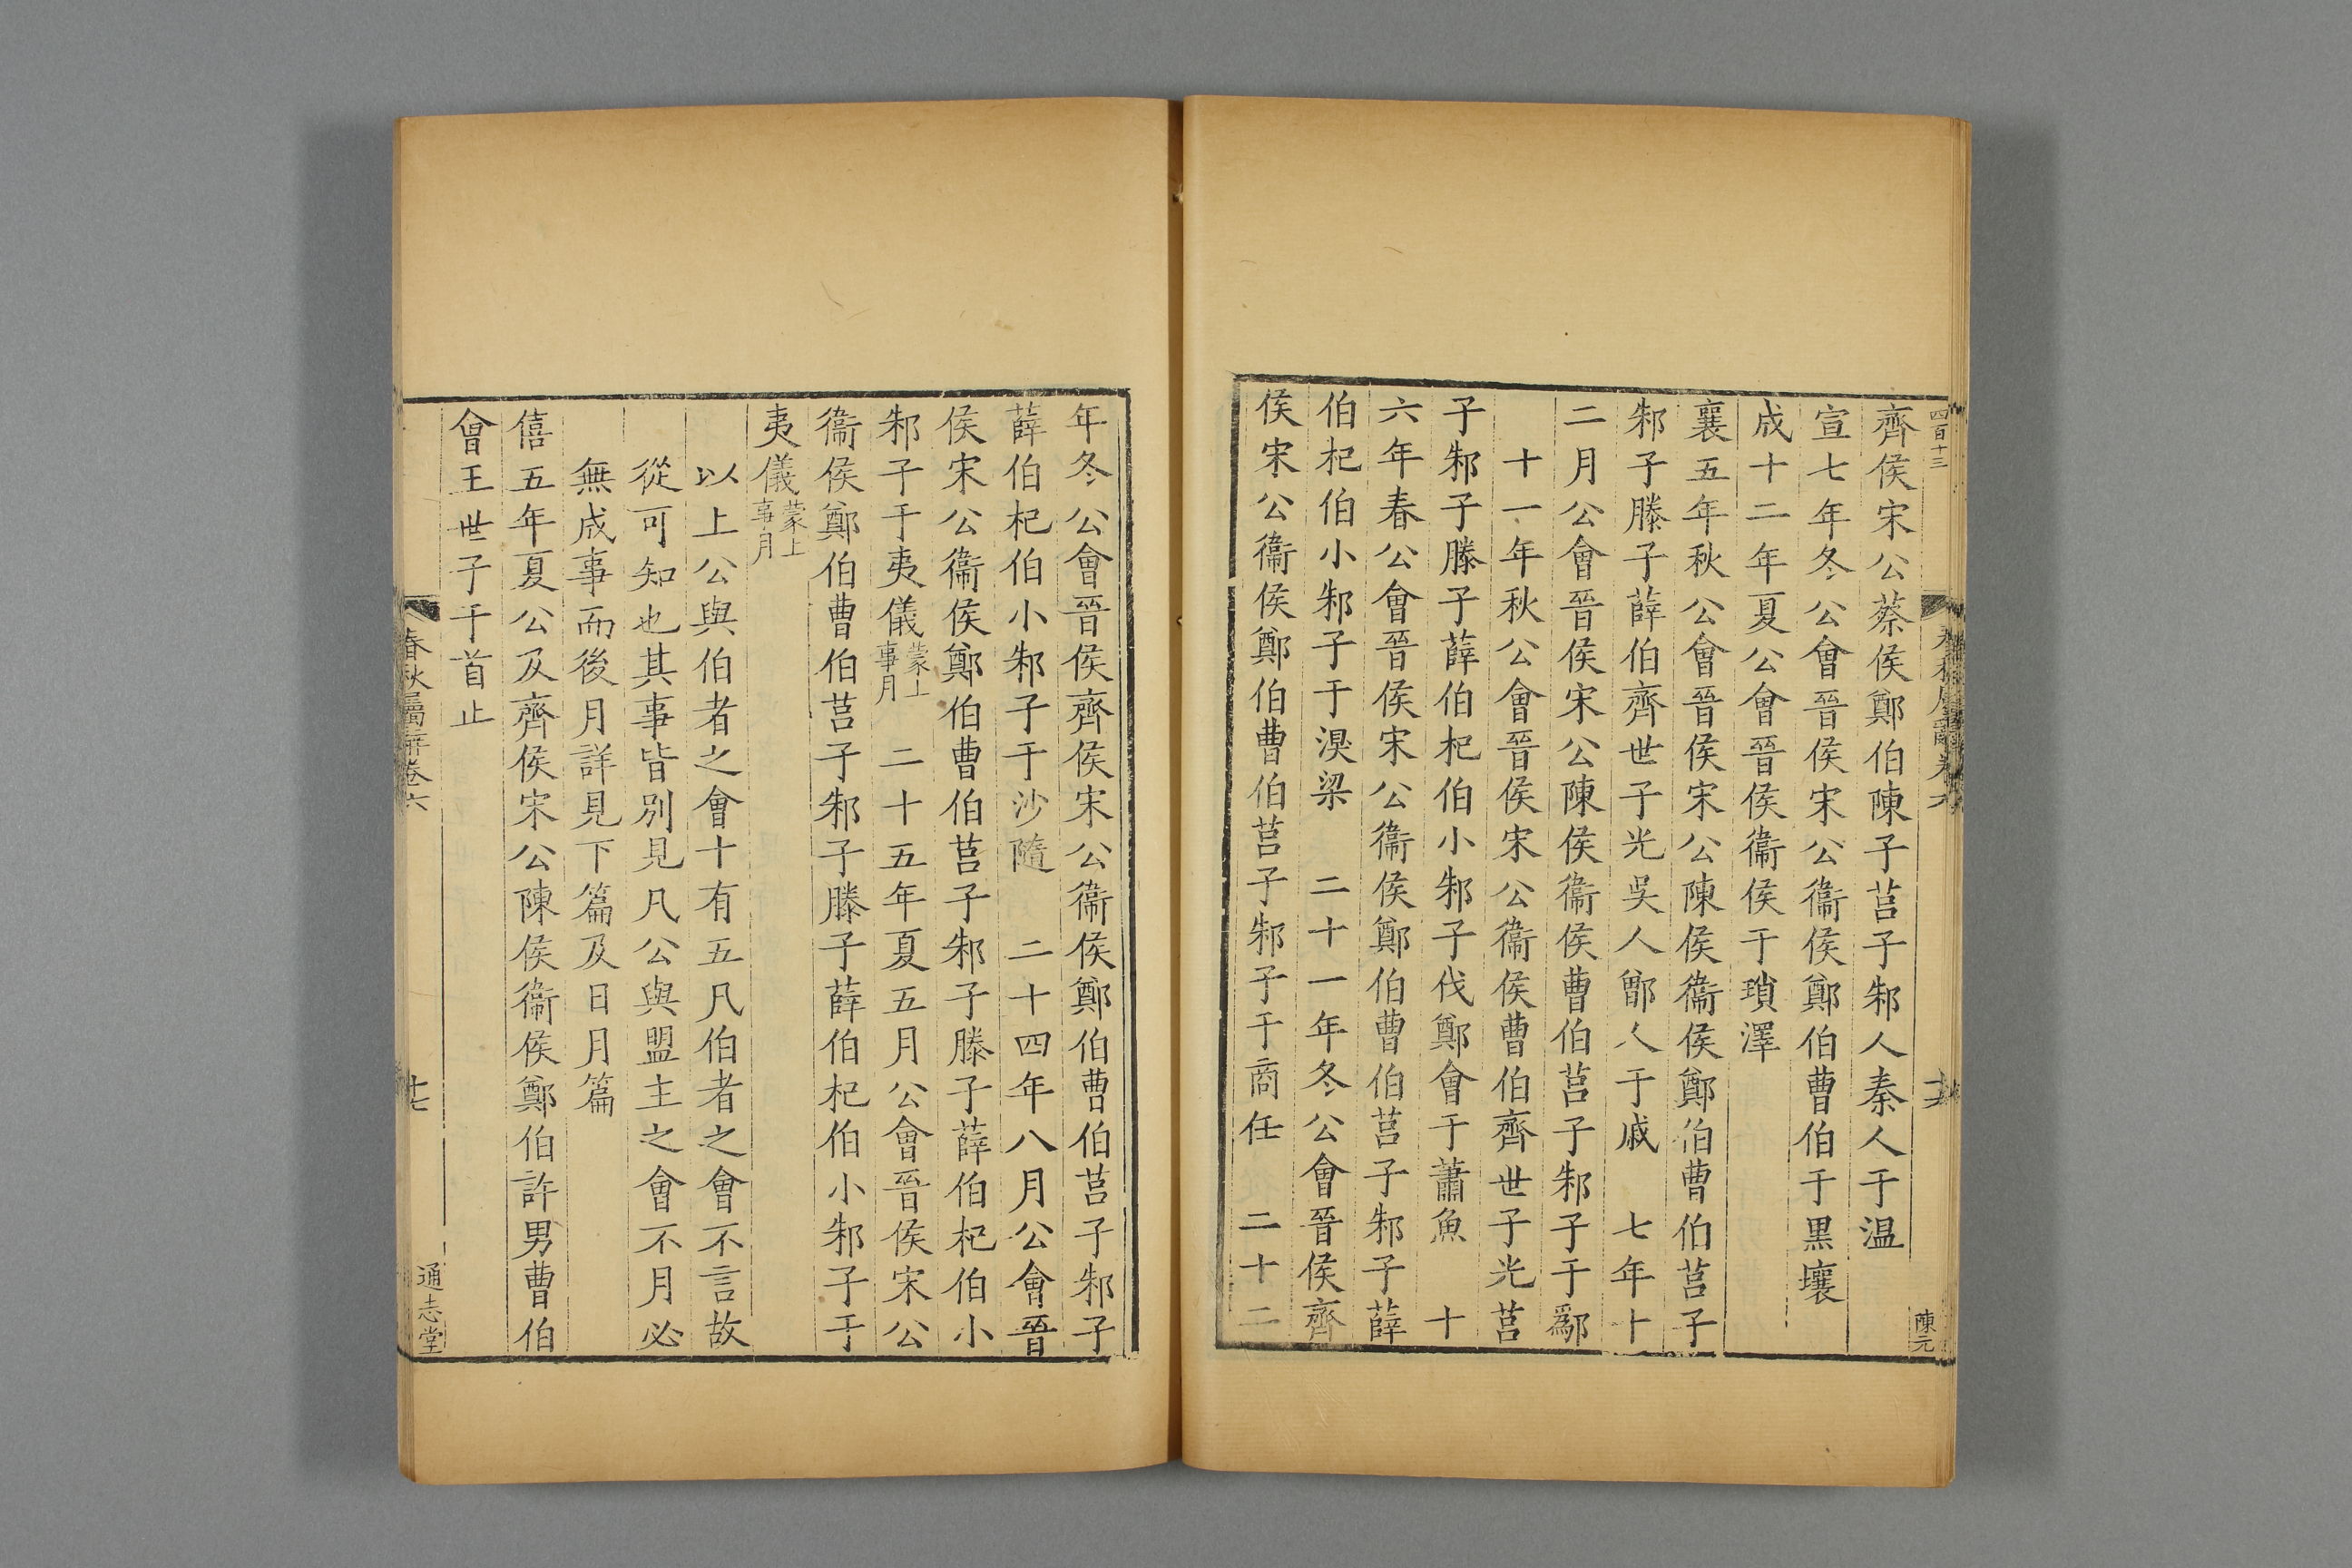 四百十三
陳元
齊侯宋公蔡侯鄭伯陳子莒子邾人秦人于温
宣七年冬公會晉侯宋公衞侯鄭伯曹伯于黒壤
成十二年夏公會晉侯衞侯于瑣澤
襄五年秋公會晉侯宋公陳侯衞侯鄭伯曹伯莒子
邾子滕子薛伯齊世子光吳人鄫人于戚　七年十
二月公會晉侯宋公陳侯衞侯曹伯莒子邾子于鄬
十一年秋公會晉侯宋公衞侯曹伯齊世子光莒
子邾子滕子薛伯杞伯小邾子伐鄭會于蕭魚　十
六年春公會晉侯宋公衞侯鄭伯曹伯莒子邾子薛
伯杞伯小邾子于湨梁　二十一年冬公會晉侯齊
侯宋公衞侯鄭伯曹伯莒子邾子于商任　二十二
年冬公會晉侯齊侯宋公衞侯鄭伯曹伯莒子邾子
薛伯杞伯小邾子于沙隨　二十四年八月公會晉
侯宋公衞侯鄭伯曹伯莒子邾子滕子薛伯杞伯小
邾子于夷儀蒙上事月　二十五年夏五月公會晉侯宋公
衞侯鄭伯曹伯莒子邾子滕子薛伯杞伯小邾子于
夷儀蒙上事月
以上公與伯者之會十有五凡伯者之會不言故
從可知也其事皆別見凡公與盟主之會不月必
無成事而後月詳見下篇及日月篇
僖五年夏公及齊侯宋公陳侯衞侯鄭伯許男曹伯
會王世子于首止
春秋屬辭卷六
十七
通志堂